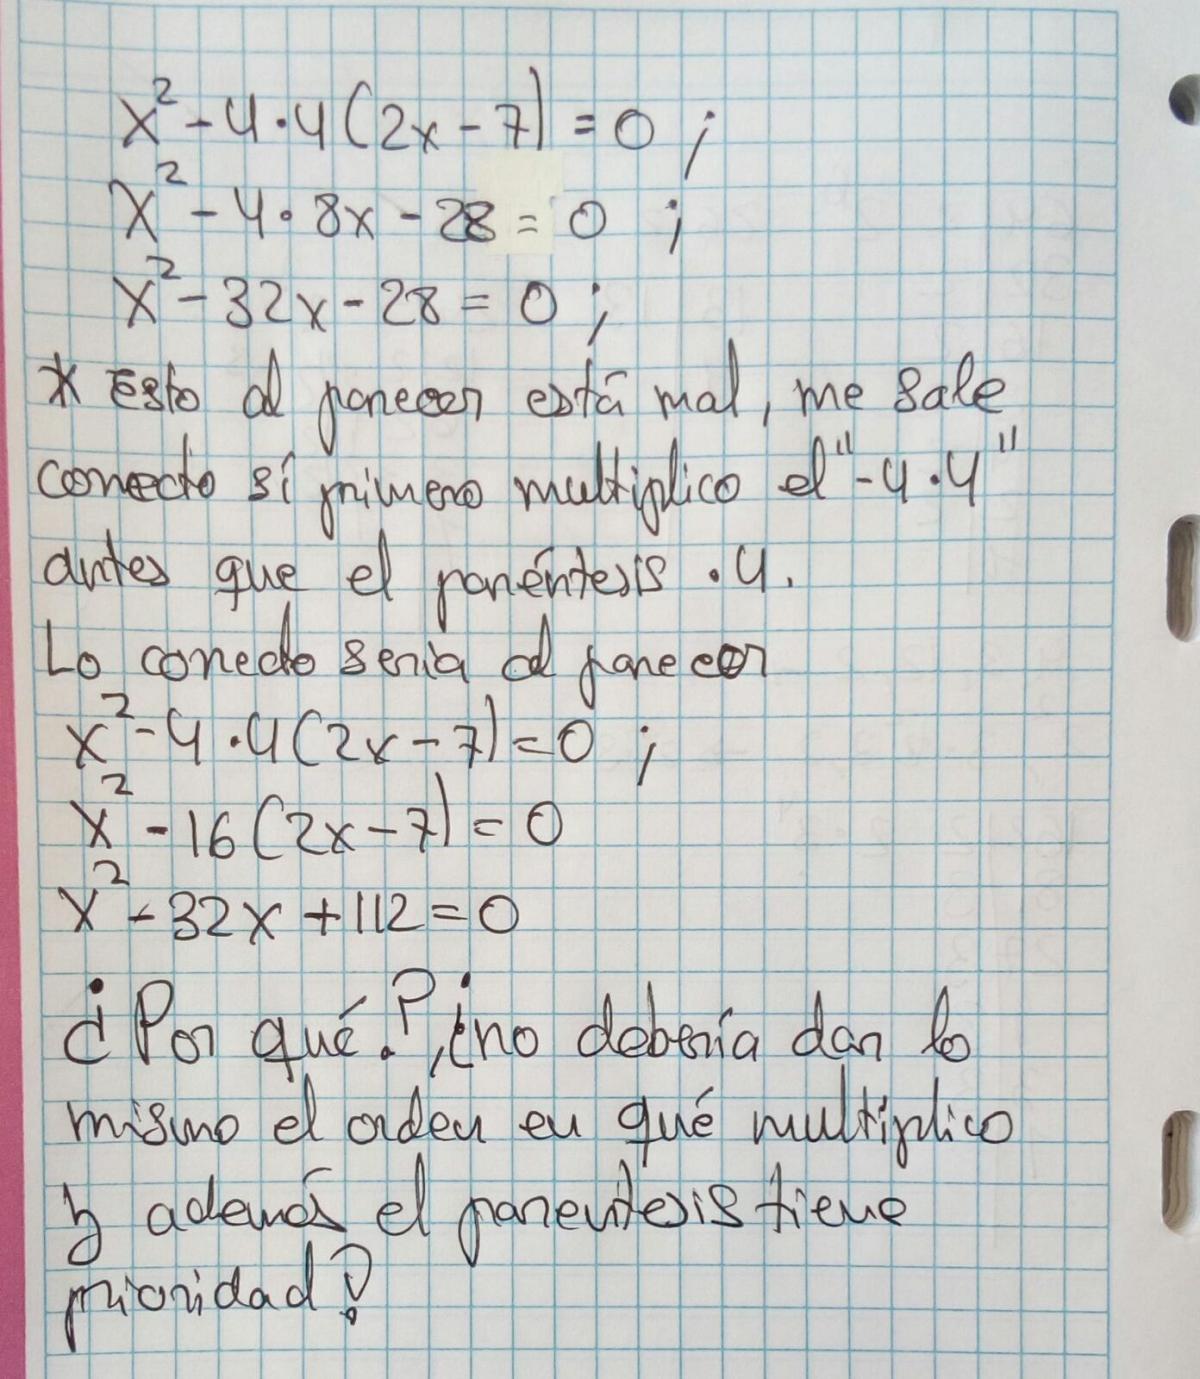 x² - 4·4(2x - 7) = 0 ;
x² - 4·8x - 28 = 0 ;
x² - 32x - 28 = 0 ;
* Esto al parecer está mal, me sale
correcto sí primero multiplico el "-4·4"
antes que el paréntesis ·4.
Lo correcto seria al parecer
x² - 4·4(2x - 7) = 0 ;
x² - 16(2x - 7) = 0
x² - 32x + 112 = 0
¿Por qué?, ¿no debería dar lo
mismo el orden en qué multiplico
y además el parentesis tiene
prioridad?